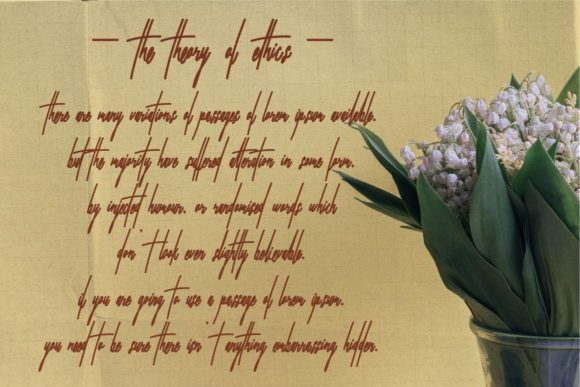 — the theory of ethics —
there are many variations of passages of lorem ipsum available.
but the majority have suffered alteration in some form.
by injected humour. or randomised words which
don't look even slightly believable.
if you are going to use a passage of lorem ipsum.
you need to be sure there isn't anything embarrassing hidden.